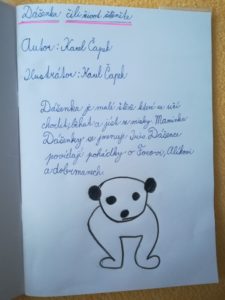 Dášenka čili život štěněte
Autor: Karel Čapek
Ilustrátor: Karel Čapek
Dášenka je malé štěně které se učí
chodit, běhat a jíst z misky. Maminka
Dášenky se jmenuje Iris Dášence
povídají pohádky o Foxovi, Alíkovi
a dobrmanech